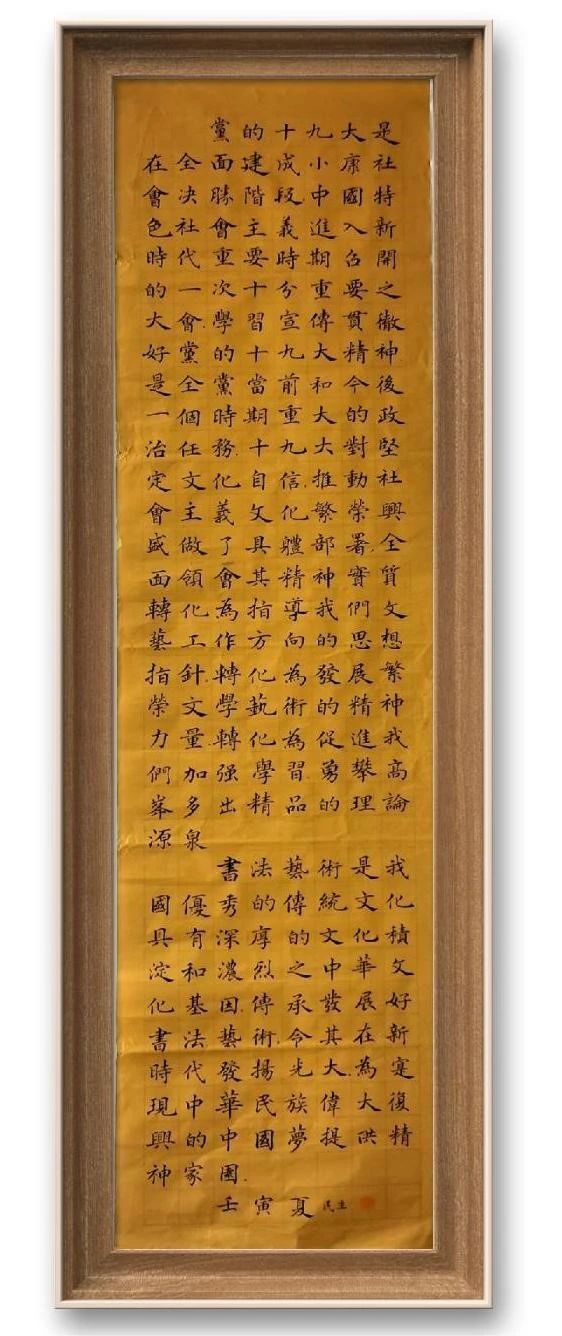 黨的十九大是
在全面建成小康社
會決勝階段中國特
色社會主義進入新
時代重要時期召開
的一次十分重要之
大會學習宣傳貫徹
好黨的十九大精神
是全黨當前和今後
一個時期重大的政
治任務十九大對堅
定文化自信推動社
會主義文化繁榮興
盛做了具體部署全
面領會其精神實質
轉化為指導我們文
藝工作方向的思想
指針轉化為發展繁
榮文學藝術的精神
力量轉化為促進我
們加强學習勇攀高
峯多出精品的理論
源泉
書法藝術是我
國優秀的傳統文化
具有深厚的文化積
淀和濃烈之中華文
化基因傳承發展好
書法藝術令其在新
時代發揚光大為寔
現中華民族偉大復
興的中國夢提洪精
神家國
壬寅夏